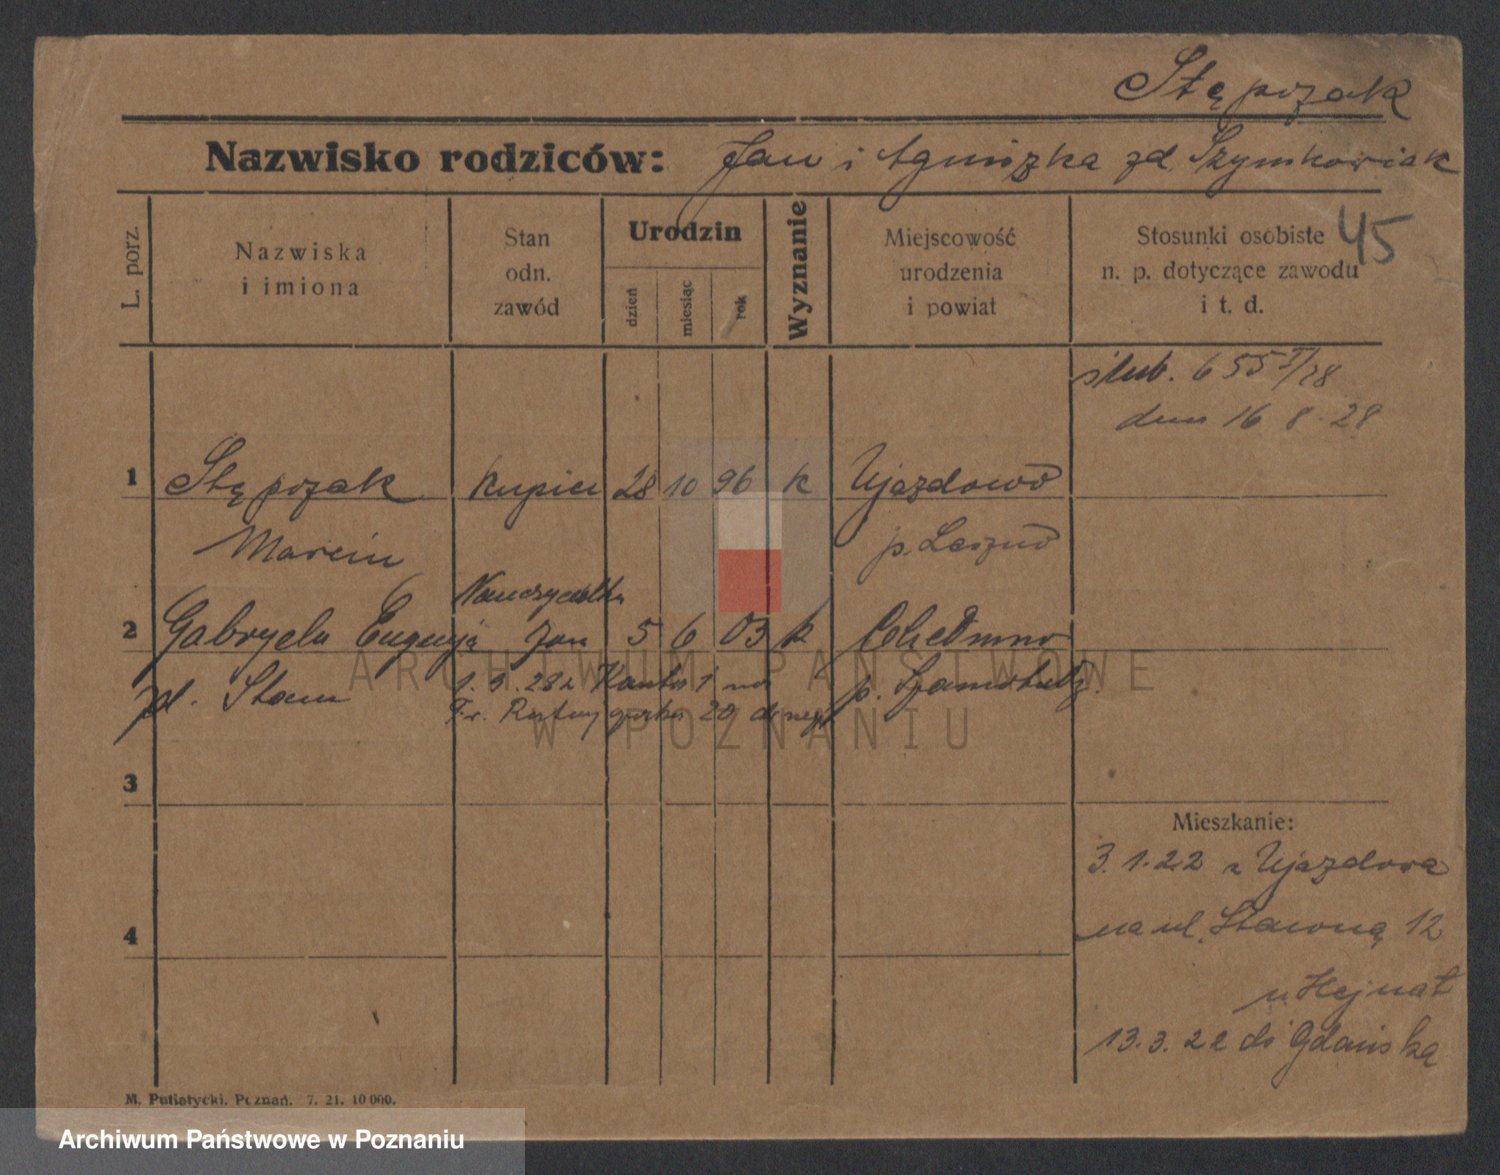 Stępczak
Nazwisko rodziców: Jan i Agniszka zd. Szymkowiak
L. porz.
Nazwiska
i imiona
Stan
odn.
zawód
Urodzin
dzień
miesiąc
rok
Wyznanie
Miejscowość
urodzenia
i powiat
Stosunki osobiste
n. p. dotyczące zawodu
i t. d.
45
ślub. 655
dnia 16 8. 28
1 Stępczak kupiec 28 10 96 k Ujazdowo
Marcin p. Leszno
Nauczycielka
2 Gabryela Eugenja 5 6 03 k Chełmno
zd. p. Szamotuły
1. 3. 28 z
Fr. Ratajczaka 20
3
4
Mieszkanie:
3. 1. 22 z Ujazdowa
na ul. Stawną 12
u. Hejnat
13. 3. 22 do Gdańska
M. Putiatycki. Poznań. 7. 21. 10 000.
ARCHIWUM PAŃSTWOWE
W POZNANIU
Archiwum Państwowe w Poznaniu